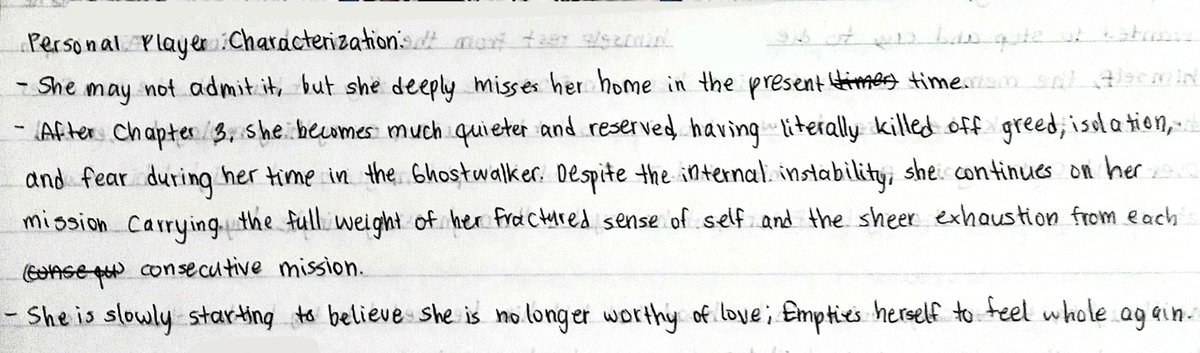 Personal Player Characterization:
- She may not admit it, but she deeply misses her home in the present times time.
- After Chapter 3, she becomes much quieter and reserved, having literally killed off greed, isolation,
and fear during her time in the Ghostwalker. Despite the internal instability, she continues on her
mission Carrying the full weight of her fractured sense of self and the sheer exhaustion from each
consecutive mission.
- She is slowly starting to believe she is no longer worthy of love; Empties herself to feel whole again.